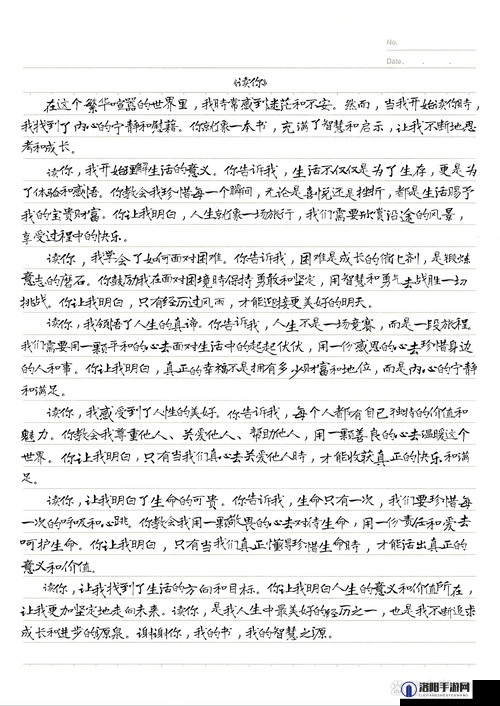 No.
Date. . .
《读你》
在这个繁华喧嚣的世界里，我时常感到迷茫和不安。然而，当我开始读你时，
我找到了内心的宁静和慰藉。你就像一本书，充满了智慧和启示，让我不断地思
考和成长。
读你，我开始理解生活的意义。你告诉我，生活不仅仅是为了生存，更是为
了体验和感悟。你教会我珍惜每一个瞬间，无论是喜悦还是挫折，都是生活赐予
我的宝贵财富。你让我明白，人生就像一场旅行，我们需要欣赏沿途的风景，
享受过程中的快乐。
读你，我学会了如何面对困难。你告诉我，困难是成长的催化剂，是锻炼
意志的磨石。你鼓励我在面对困境时保持勇敢和坚定，用智慧和勇气去战胜一切
挑战。你让我明白，只有经历过风雨，才能迎接更美好的明天。
读你，我领悟了人生的真谛。你告诉我，人生不是一场竞赛，而是一段旅程。
我们需要用一颗平和的心去面对生活中的起起伏伏，用一份感恩的心去珍惜身边
的人和事。你让我明白，真正的幸福不是拥有多少财富和地位，而是内心的宁静
和满足。
读你，我感受到了人性的美好。你告诉我，每个人都有自己独特的价值和
魅力。你教会我尊重他人、关爱他人、帮助他人，用一颗善良的心去温暖这个
世界。你让我明白，只有当我们真心去关爱他人时，才能收获真正的快乐和满
足。
读你，让我明白了生命的可贵。你告诉我，生命只有一次，我们要珍惜每
一次的呼吸和心跳。你教会我用一颗敬畏的心去对待生命，用一份责任和爱去
呵护生命。你让我明白，只有当我们真正懂得珍惜生命时，才能活出真正的
意义和价值。
读你，让我找到了生活的方向和目标。你让我明白人生的意义和价值所在，
让我更加坚定地走向未来。读你，是我人生中最美好的经历之一，也是我不断追求
成长和进步的源泉。谢谢你，我的书，我的智慧之源。
洛阳手游网